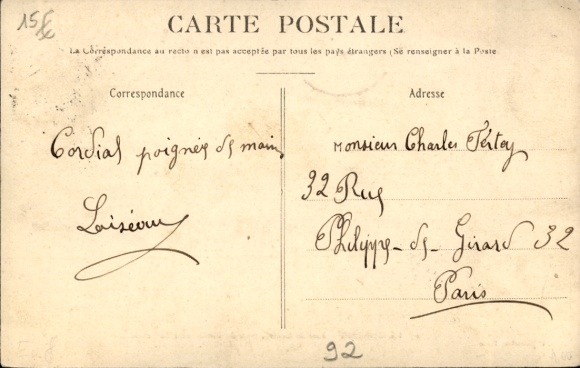 15f
CARTE POSTALE
La Correspondance au recto n est pas acceptée par tous les pays étrangers (Se renseigner à la Poste
Correspondance
Adresse
Cordial poignés de main
Loiseau
Monsieur Charles
32 Rue
Philippe-de-Girard 32
Paris
92